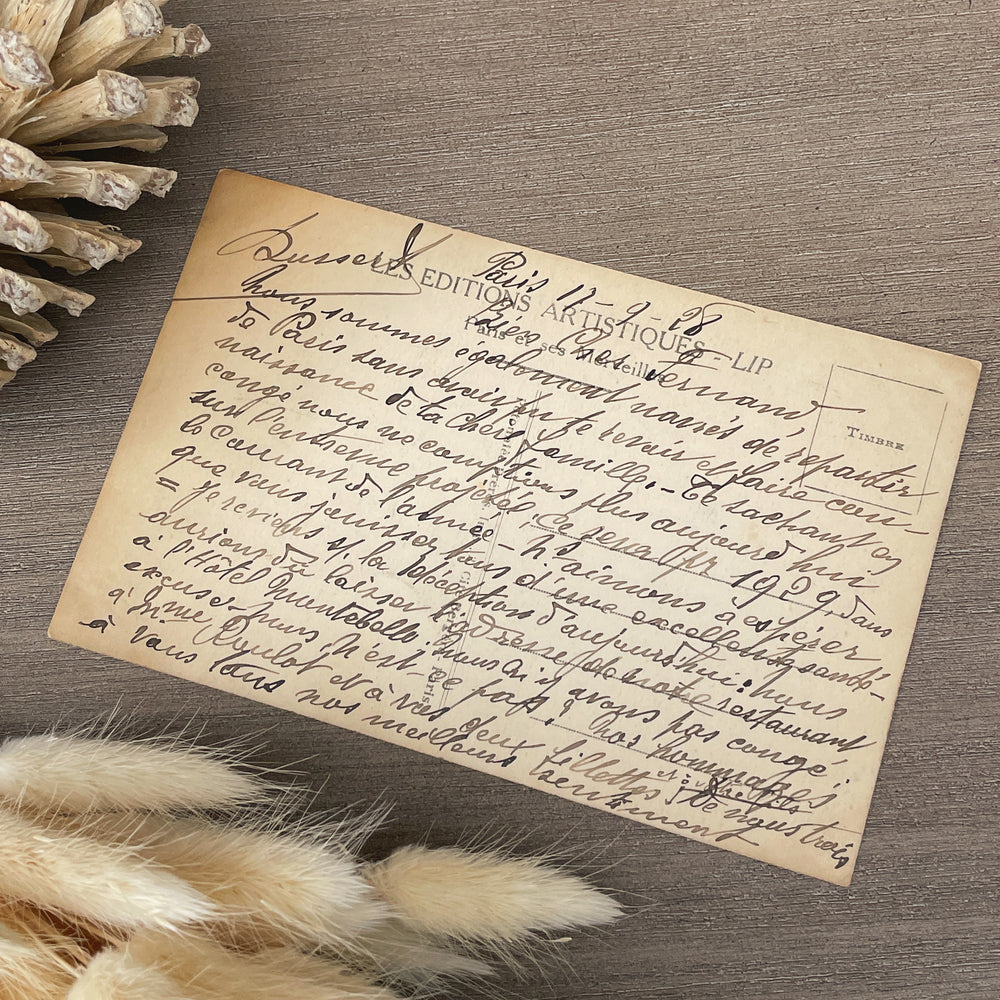 LES EDITIONS ARTISTIQUES - LIP
Paris et ses Merveilles
TIMBRE
Paris 17-9-28
Bien Cher Fernand,
Nous sommes également navrés de repartir
de Paris sans avoir pu te revoir et faire con-
naissance de ta chère famille. - Te sachant en
congé nous ne comptions plus aujourd'hui
sur l'entrevue projetée, ce sera pr 1929 dans
le courant de l'année - N. aimons à espérer
que vous jouissez tous d'une excellente santé-
= Je reviens s. la déception d'aujourd'hui: nous
aurions dû laisser l'adresse de notre restaurant
à l'Hôtel Montebello, mais ns avons pas congé,
excuse-nous, n'est-ce pas? Nos hommages
à Mme et à vos deux fillettes
De nous trois
à vous tous nos meilleurs sentiments